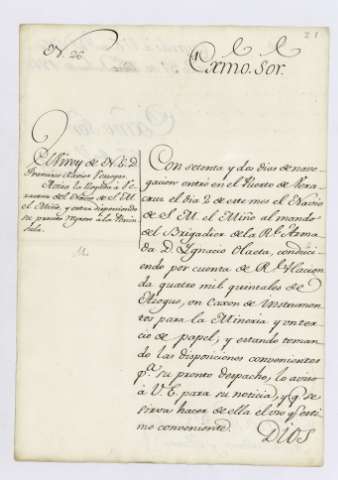 N. 26.
Exmo. Sor.
El Virrey de N. E. D.
Francisco Xavier Venegas.
Avisa la llegada á Ve-
racruz del Navio de S. M.
el Miño, y estar disponiendo
su pronto regreso á la Penin-
sula.
Con setenta y dos dias de nave-
gacion entró en el Puerto de Vera-
cruz el dia 2 de este mes el Navio
de S. M. el Miño al mando
del Brigadier de la Rl. Arma-
da D. Ignacio Olaeta, conduci-
endo por cuenta de Rl. Hacien-
da quatro mil quintales de
Azogue, un Caxon de Instrumen-
tos para la Mineria y un ter-
cio de papel, y estando toman-
do las disposiciones convenientes
pa. su pronto despacho, lo aviso
á V. E. para su noticia, y q. se
sirva hacer de ella el uso q. esti-
me conveniente.
DIOS